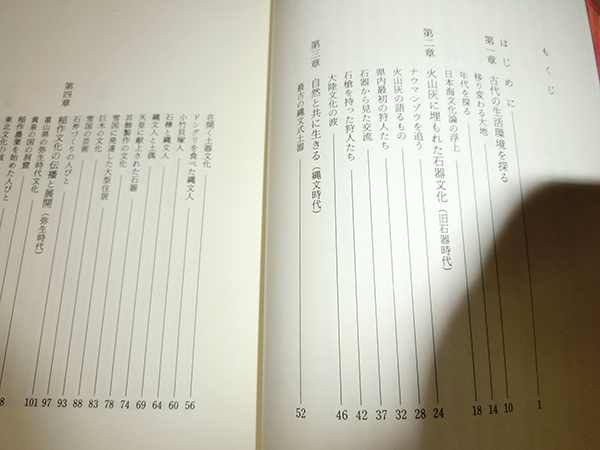 もくじ
はじめに 1
第一章 古代の生活環境を探る
移り変わる大地 10
年代を探る 14
日本海文化論の浮上 18
第二章 火山灰に埋もれた石器文化(旧石器時代)
ナウマンゾウを追う 24
火山灰の語るもの 28
県内最初の狩人たち 32
石器から見た交流 37
石槍を持った狩人たち 42
大陸文化の波 46
第三章 自然と共に生きる(縄文時代)
最古の縄文式土器 52
花開く土器文化 56
ドングリを食べた縄文人 60
小竹貝塚人 64
石棒と縄文人 69
縄文人と土偶 74
天皇に献上された石器 78
耳飾製作の文化 83
巨木の文化 88
雪国に発達した大型住居 93
雪国の芸術 97
石斧づくりの人びと 101
第四章 稲作文化の伝播と展開(弥生時代)
富山県の弥生時代文化 8
黄泉の国の洞窟
稲作農業を始めた人びと
東北文化の波